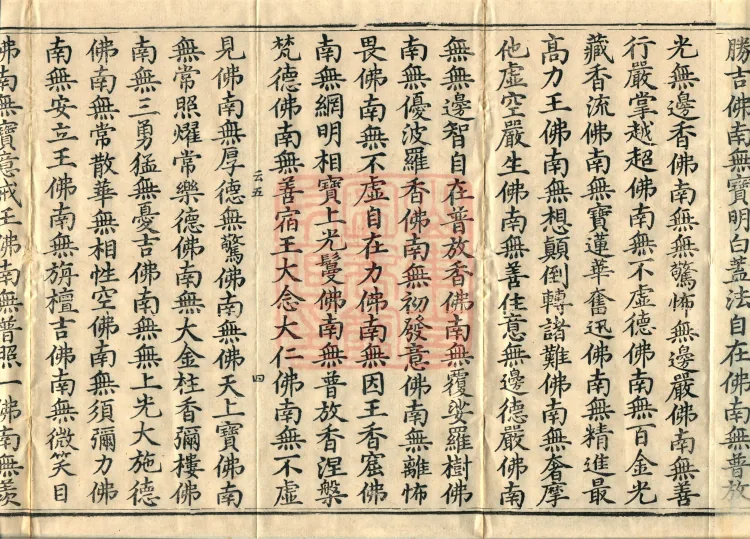 勝吉佛南無寶明白蓋法自在佛南無普放
光無邊香佛南無無驚怖無邊嚴佛南無善
行嚴掌越超佛南無不虛德佛南無百金光
藏香流佛南無寶蓮華奮迅佛南無精進最
高力王佛南無想顛倒轉諸難佛南無奢摩
他虛空嚴生佛南無善住意無邊德嚴佛南
無無邊智自在普放香佛南無覆娑羅樹佛
南無優波羅香佛南無初發意佛南無離怖
畏佛南無不虛自在力佛南無因王香窟佛
南無網明相寶上光鬘佛南無普放香涅槃
梵德佛南無善宿王大念大仁佛南無不虛
云五
四
見佛南無厚德無驚佛南無佛天上寶佛南
無常照燿常樂德佛南無大金柱香彌樓佛
南無三勇猛無憂吉佛南無無上光大施德
佛南無常散華無相性空佛南無須彌力佛
南無安立王佛南無旃檀吉佛南無微笑目
佛南無寶意戒王佛南無普照一佛南無羨